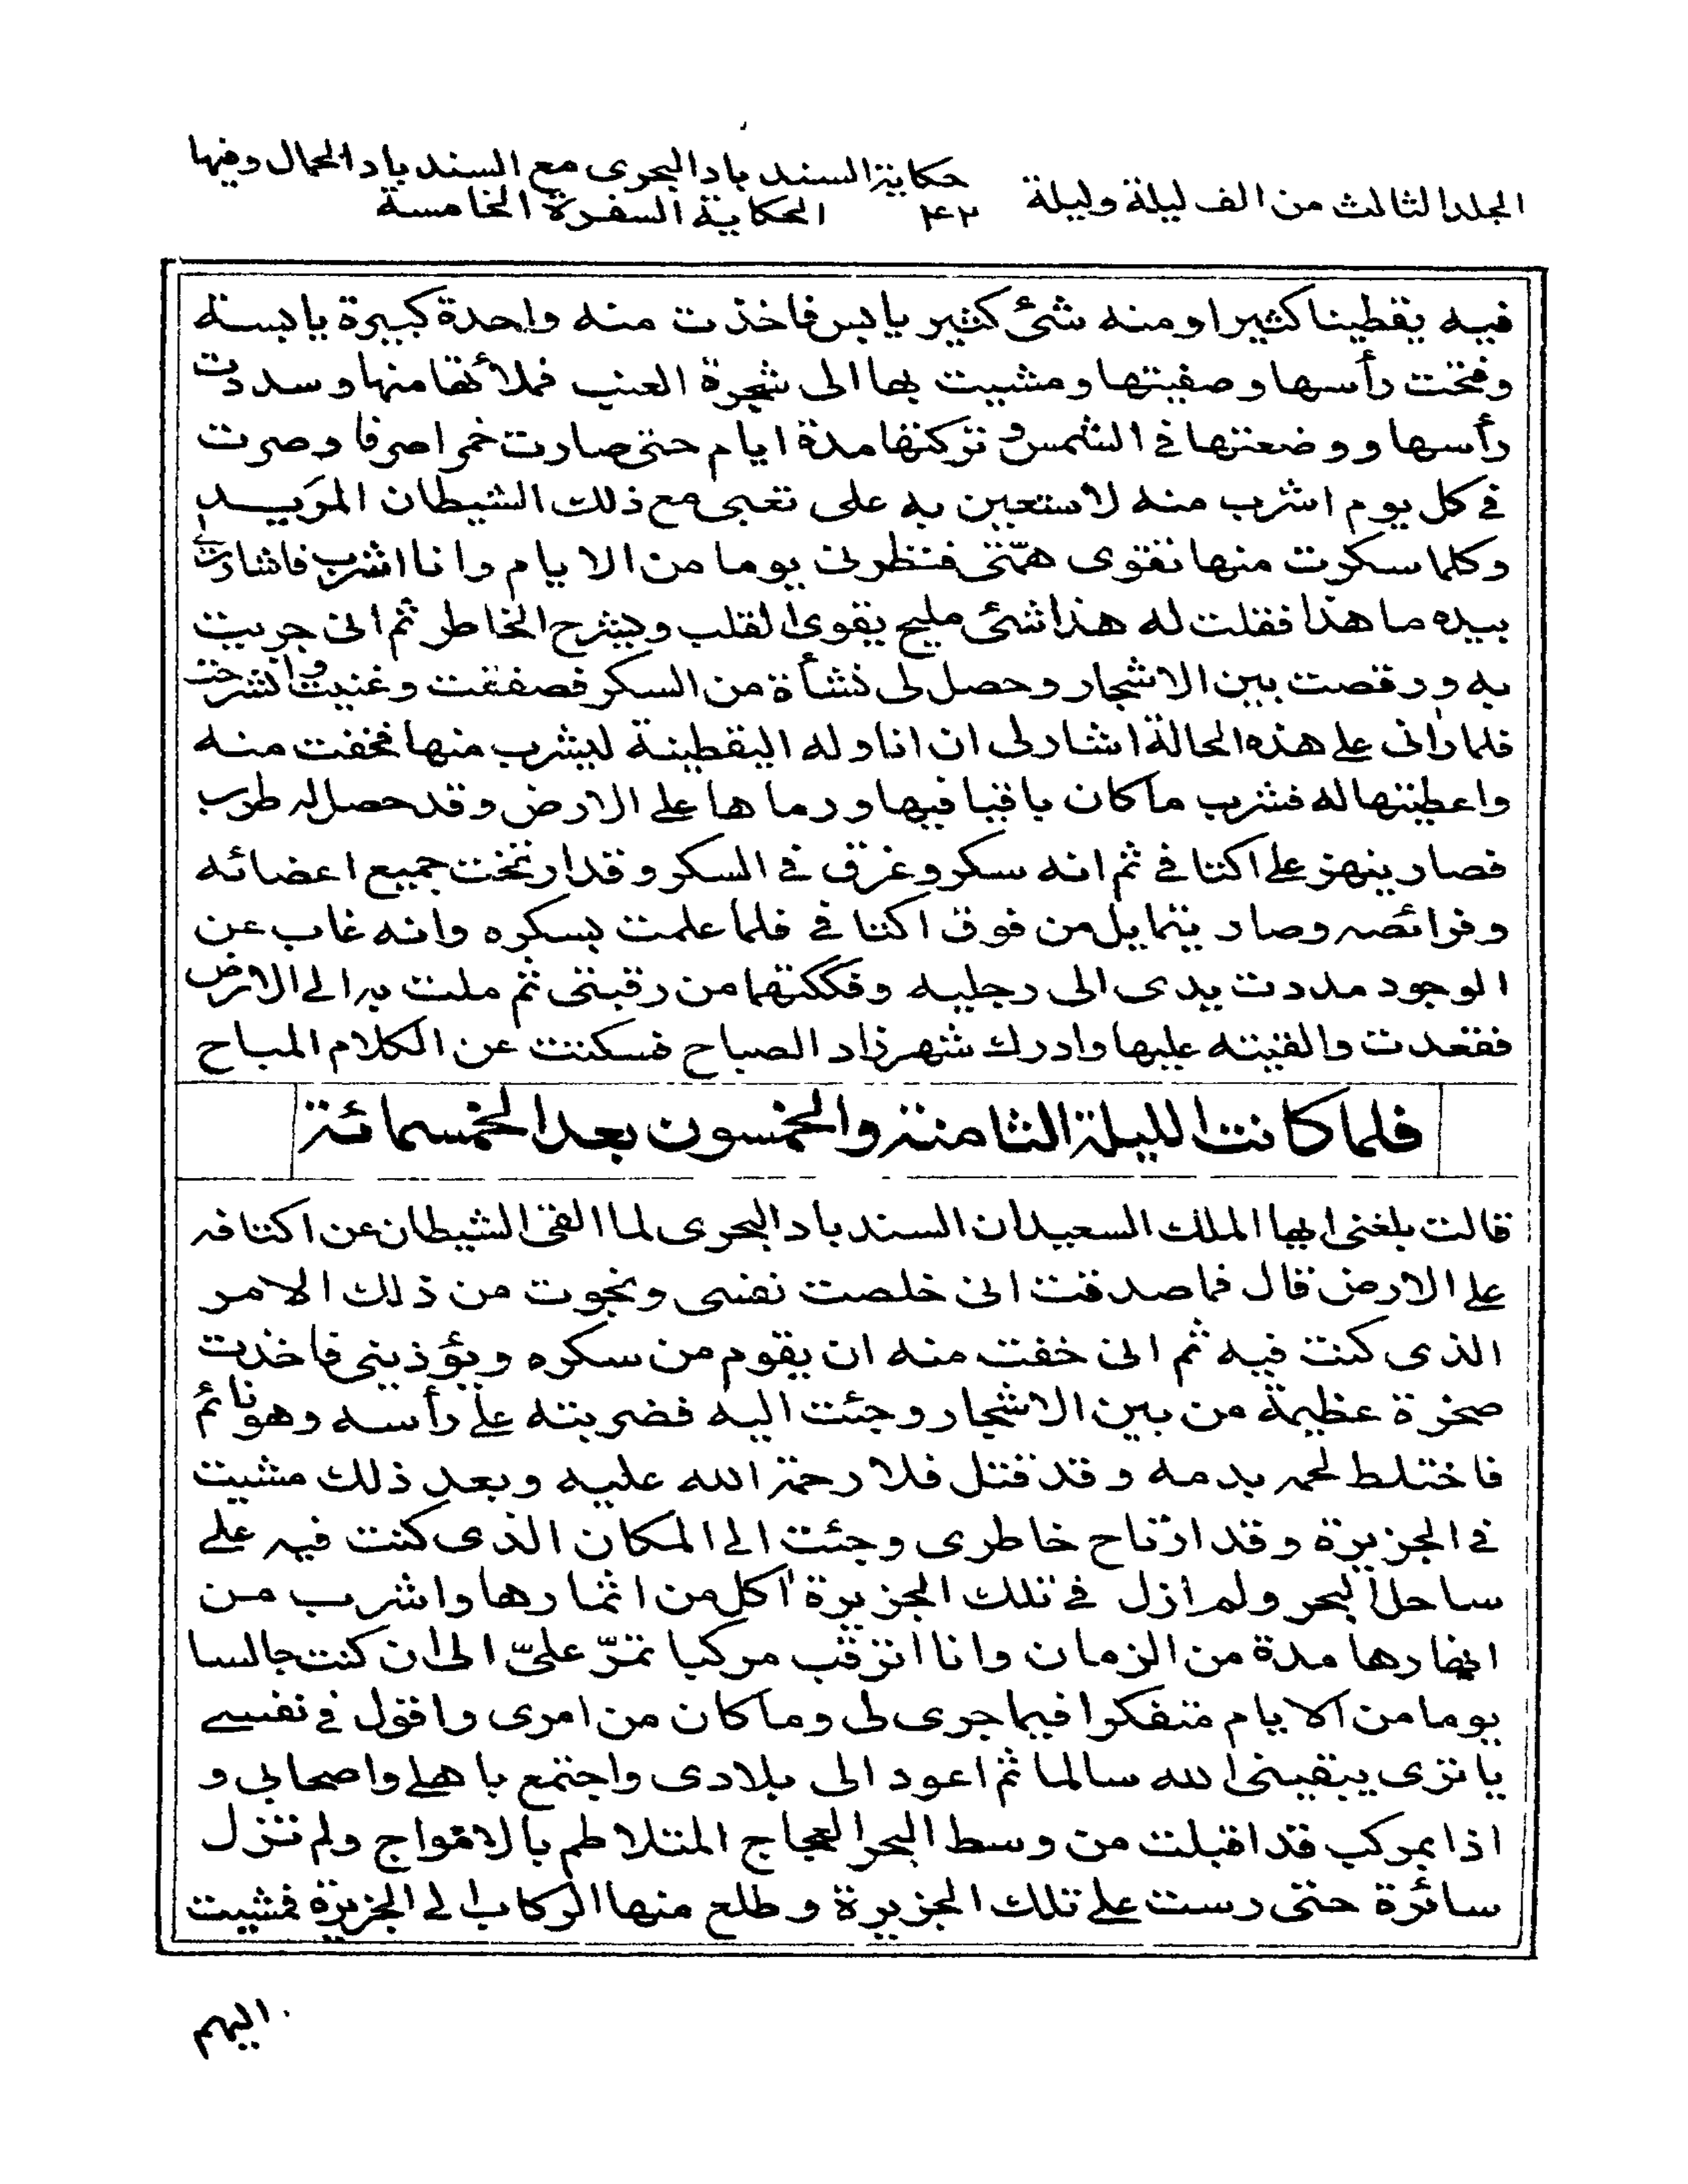 المجلد الثالث من الف ليلة وليلة ٤٢ حكاية السندباد البحرى مع السندباد الحمال وفيها
الحكاية السفرة الخامسة
فيه يقطينا كثيرا ومنه شئ كثير يابس فاخذت منه واحدة كبيرة يابسة
وفتحت رأسها وصفيتها ومشيت بها الى شجرة العنب فملأتها منها وسددت
رأسها ووضعتها فى الشمس وتركتها مدة ايام حتى صارت خمرا صرفا وصرت
فى كل يوم اشرب منه لاستعين به على تعبى مع ذلك الشيطان المريد
وكلما سكرت منها تقوى همّتى فنظرنى يوما من الايام وانا اشرب فاشار لى
بيده ما هذا فقلت له هذا شئ مليح يقوى القلب ويشرح الخاطر ثم انى جريت
به ورقصت بين الاشجار وحصل لى نشأة من السكر فصفقت وغنيت وانشرحت
فلما رانى على هذه الحالة اشار لى ان اناوله اليقطينة ليشرب منها فخفت منه
واعطيتها له فشرب ما كان باقيا فيها ورماها على الارض وقد حصل له طرب
فصار ينهز على اكتافى ثم انه سكر وغرق فى السكر وقد ارتخت جميع اعضائه
وفرائصه وصار يتمايل من فوق اكتافى فلما علمت بسكره وانه غاب عن
الوجود مددت يدى الى رجليه وفككتهما من رقبتى ثم ملت به الى الارض
فقعدت والقيته عليها وادرك شهرزاد الصباح فسكتت عن الكلام المباح
فلما كانت الليلة الثامنة والخمسون بعد الخمسمائة
قالت بلغنى ايها الملك السعيد ان السندباد البحرى لما القى الشيطان عن اكتافه
على الارض قال فما صدقت انى خلصت نفسى ونجوت من ذلك الامر
الذى كنت فيه ثم انى خفت منه ان يقوم من سكره ويؤذينى فاخذت
صخرة عظيمة من بين الاشجار وجئت اليه فضربته على رأسه وهو نائم
فاختلط لحمه بدمه وقد قتل فلا رحمة الله عليه وبعد ذلك مشيت
فى الجزيرة وقد ارتاح خاطرى وجئت الى المكان الذى كنت فيه على
ساحل البحر ولم ازل فى تلك الجزيرة آكل من اثمارها واشرب من
انهارها مدة من الزمان وانا اترقب مركبا تمرّ علىّ الى ان كنت جالسا
يوما من الايام متفكرا فيما جرى لى وما كان من امرى واقول فى نفسى
يا ترى يبقينى الله سالما ثم اعود الى بلادى واجتمع باهلى واصحابى و
اذا بمركب قد اقبلت من وسط البحر العجاج المتلاطم بالامواج ولم تزل
سائرة حتى رست على تلك الجزيرة وطلع منها الركاب الى الجزيرة فمشيت
اليهم